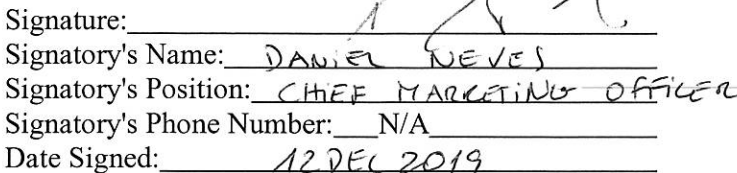 Signature:
Signatory's Name: DANIEL NEVES
Signatory's Position: CHIEF MARKETING OFFICER
Signatory's Phone Number: N/A
Date Signed: 12 DEC 2019